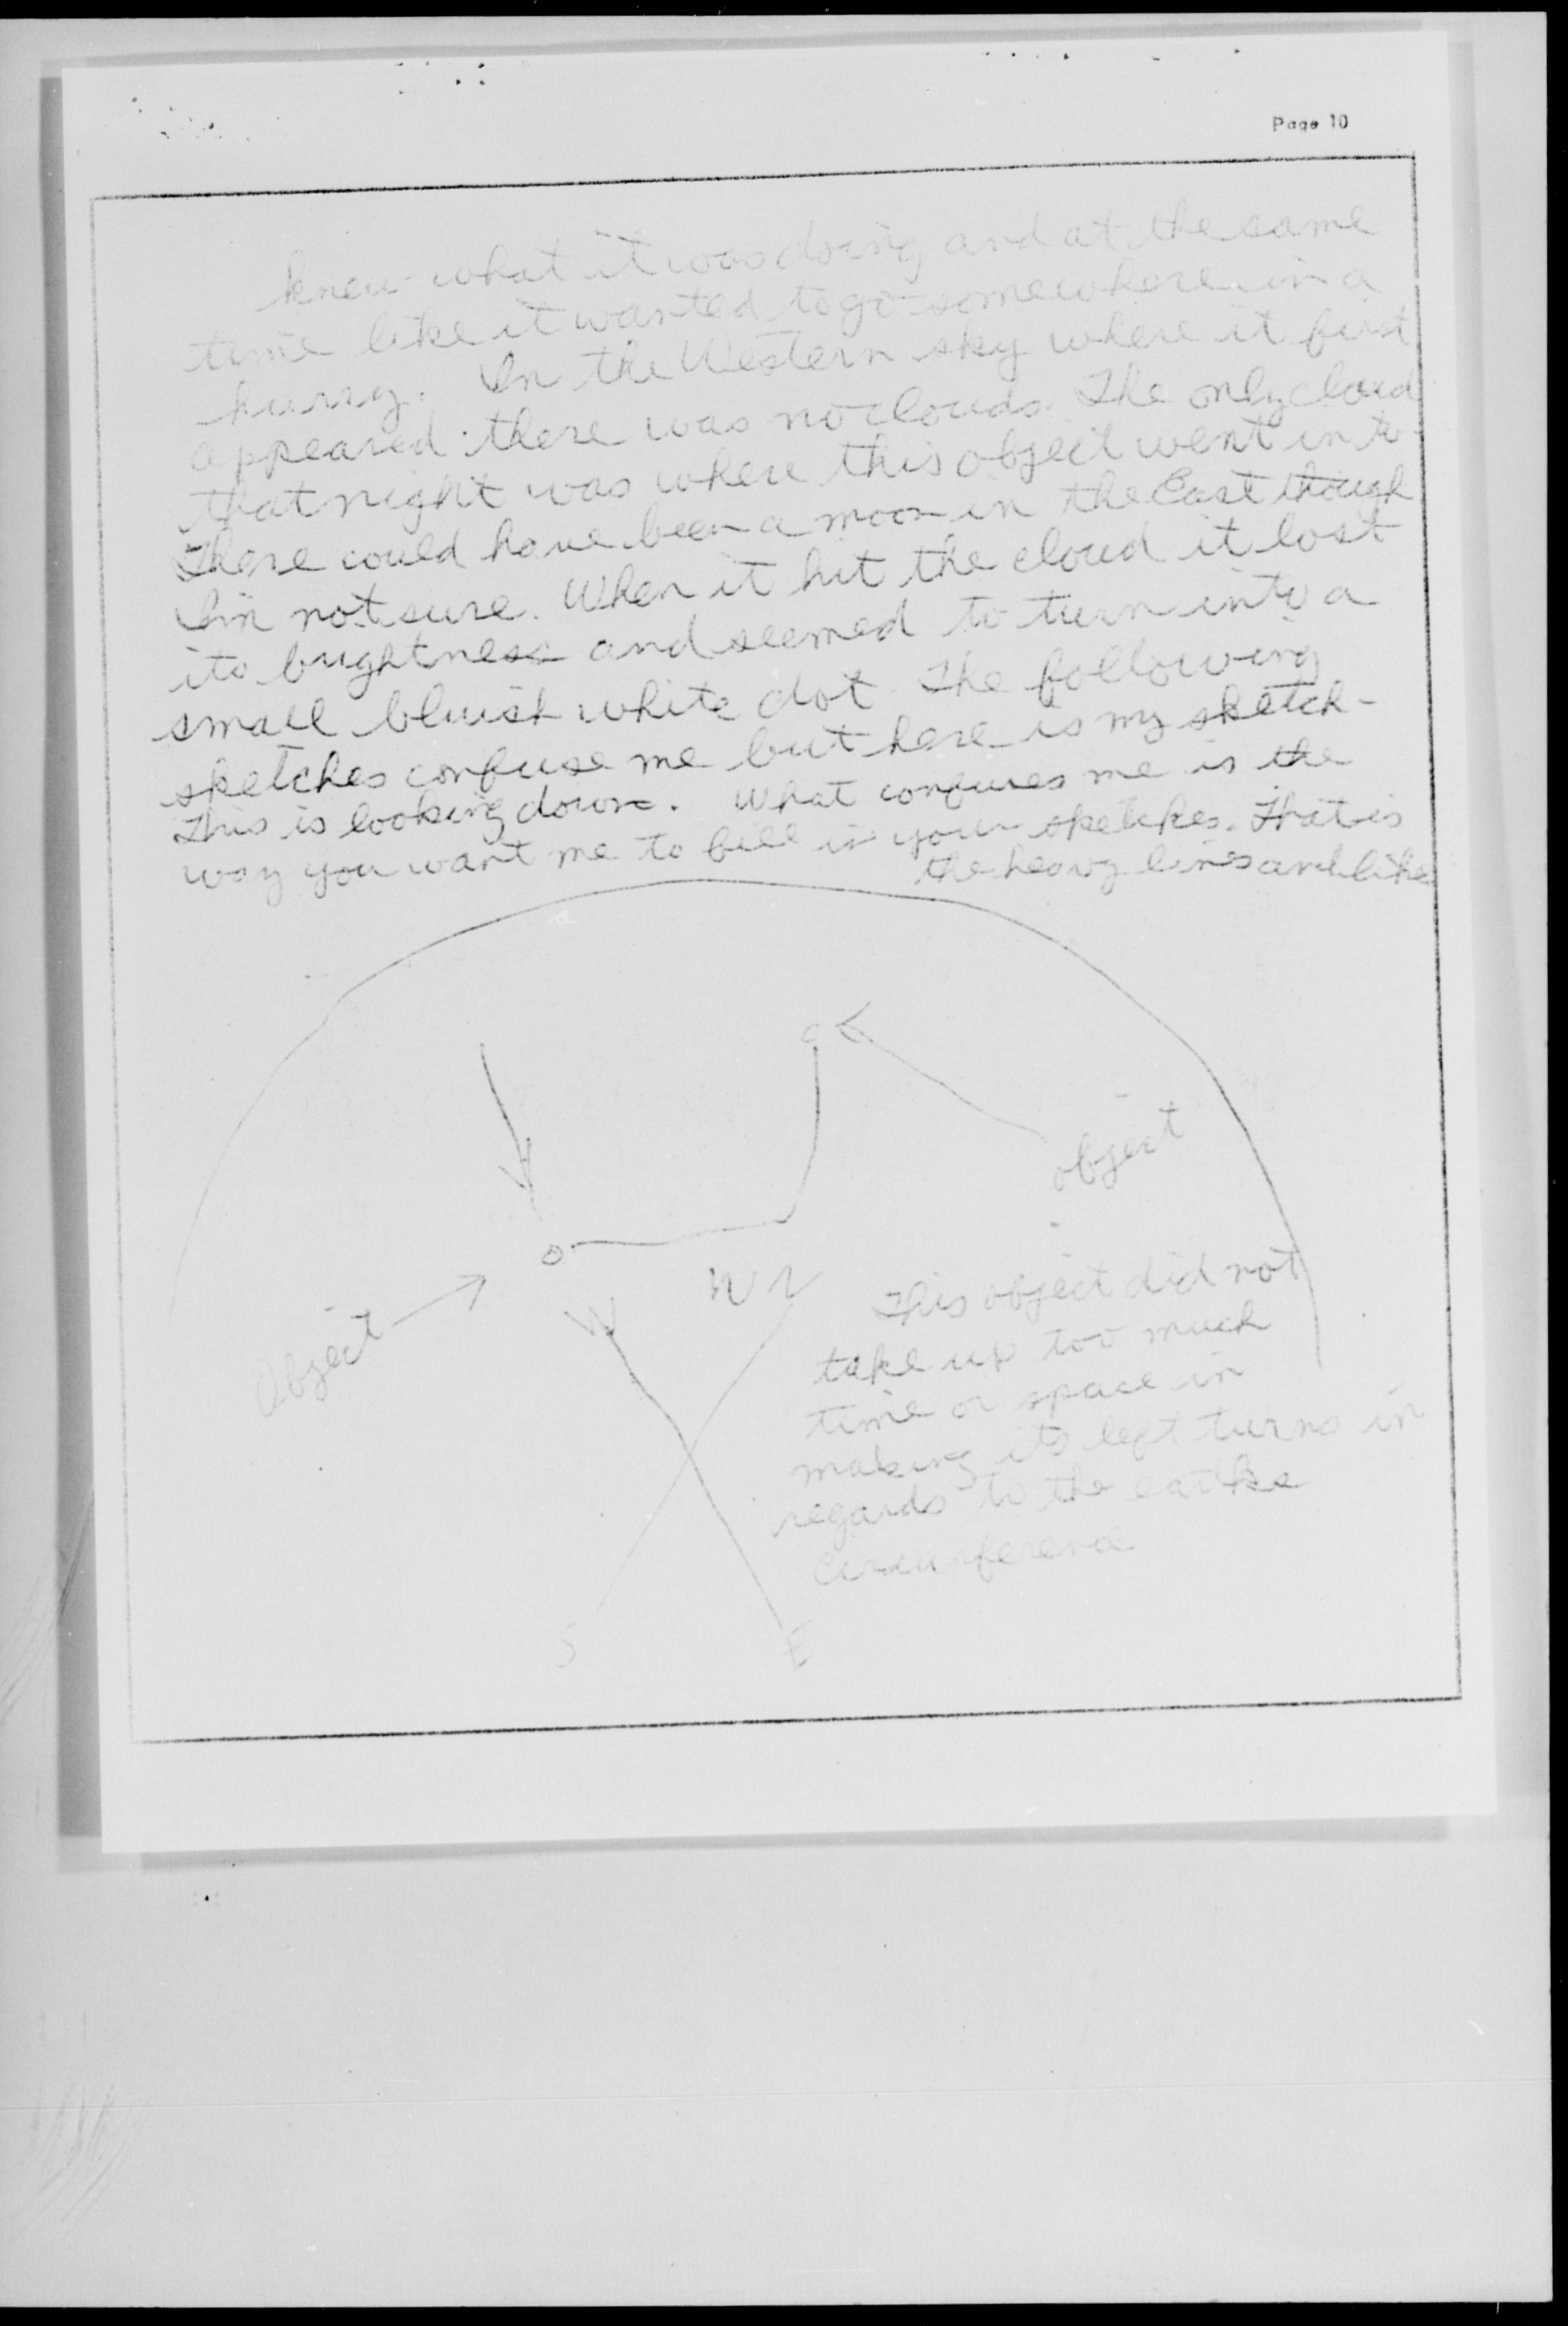 Page 10
knew what it was doing and at the same
time like it wanted to go somewhere in a
hurry. In the Western sky where it first
appeared there was no clouds. The only cloud
that night was where this object went in to
There could have been a moon in the East though
I'm not sure. When it hit the cloud it lost
its brightness and seemed to turn into a
small bluish white dot. The following
sketches confuse me but here is my sketch-
This is looking down. What confuses me is the
way you want me to fill in your sketches. That is
the heavy lines and like
object
Object
W
N
W
This object did not
take up too much
time or space in
making its left turns in
regards to the earths
Circumference
S
E